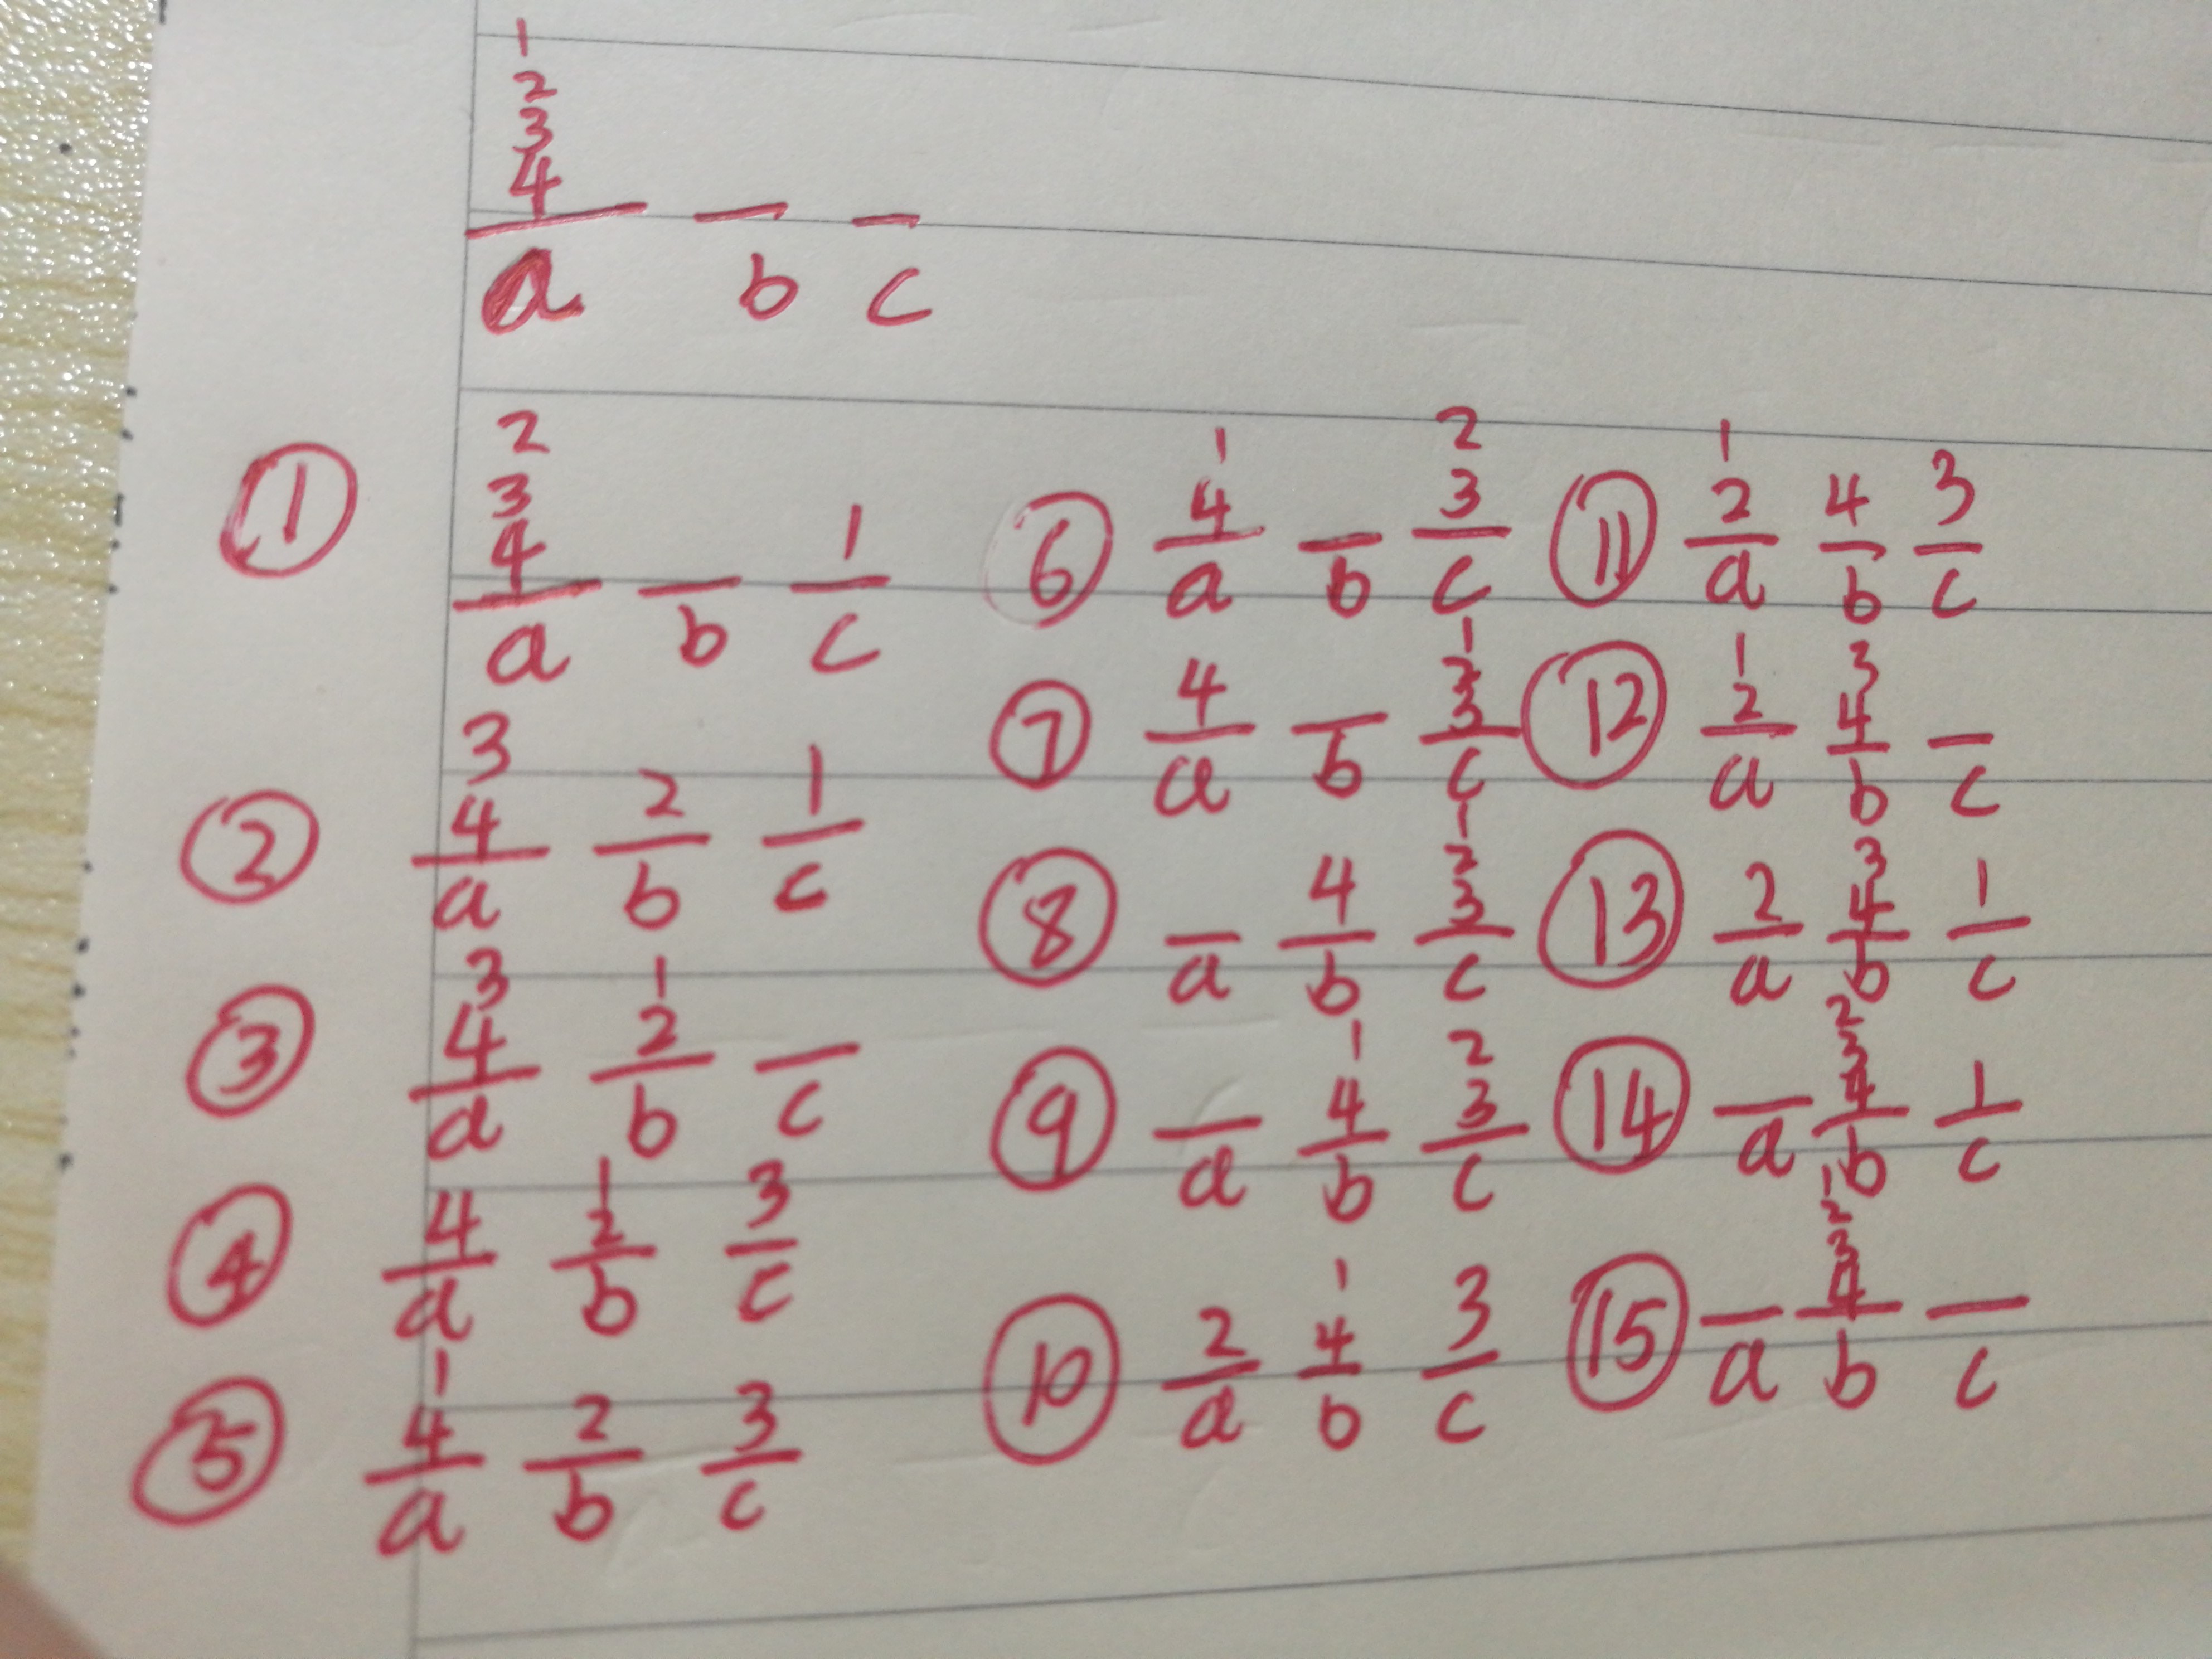 1
2
3
4
a b c
① 2 3 4 a b 1 c
② 3 4 a 2 b 1 c
③ 3 4 a 1 2 b c
④ 4 a 1 2 b 3 c
⑤ 1 4 a 2 b 3 c
⑥ 1 4 a b 2 3 c
⑦ 4 a b 1 2 3 c
⑧ a 4 b 1 2 3 c
⑨ a 1 4 b 2 3 c
⑩ 2 a 1 4 b 3 c
⑪ 1 2 a 4 b 3 c
⑫ 1 2 a 3 4 b c
⑬ 2 a 3 4 b 1 c
⑭ a 2 3 4 b 1 c
⑮ a 1 2 3 4 b c